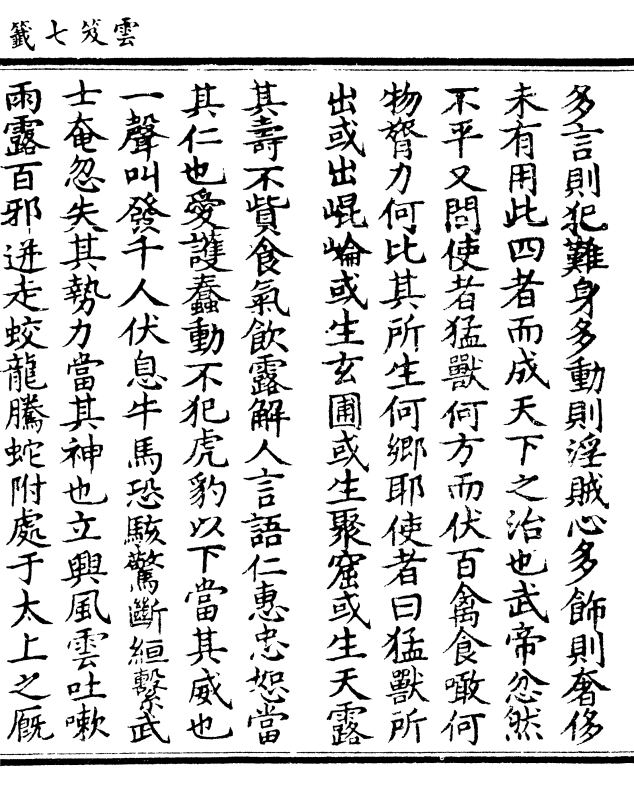 雲笈七籤
多言則犯難身多動則淫賊心多飾則奢侈
未有用此四者而成天下之治也武帝忿然
不平又問使者猛獸何方而伏百禽食噉何
物膂力何比其所生何鄉耶使者曰猛獸所
出或出崐崘或生玄圃或生聚窟或生天露
其壽不貲食氣飲露解人言語仁惠忠恕當
其仁也愛護蠢動不犯虎豹以下當其威也
一聲叫發千人伏息牛馬恐駭驚斷絙繫武
士奄忽失其勢力當其神也立興風雲吐嗽
雨露百邪迸走蛟龍騰蛇附處于太上之厩